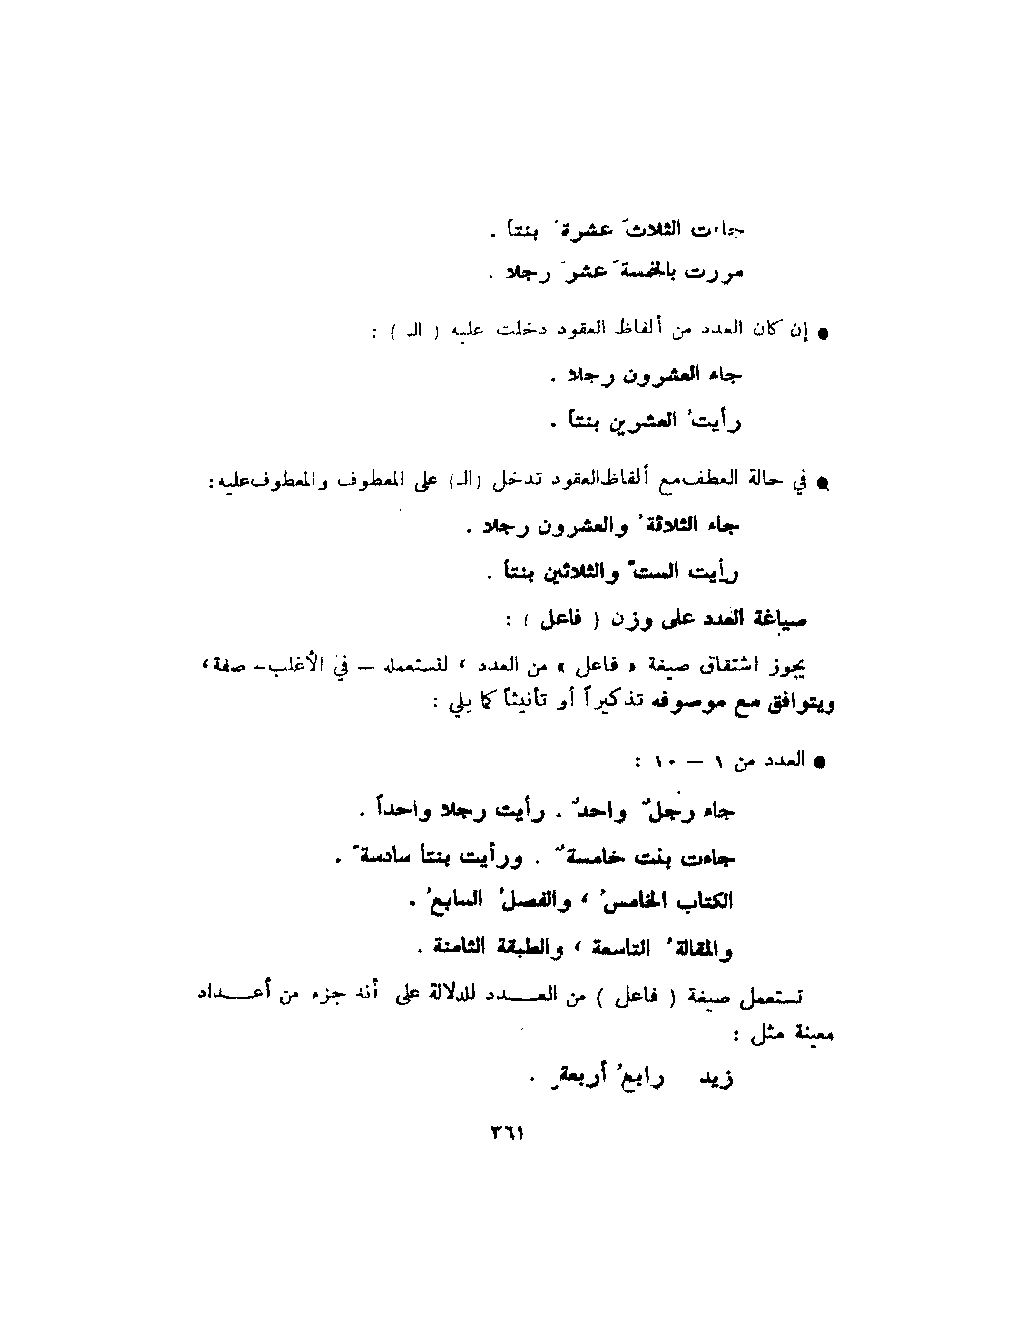 جاءت الثلاثَ عشرةَ بنتاً .
مررت بالخمسةَ عشرَ رجلا .
● إن كان العدد من ألفاظ العقود دخلت عليه ( الـ ) :
جاء العشرون رجلا .
رأيتُ العشرين بنتاً .
● في حالة العطف مع ألفاظ العقود تدخل (الـ) على المعطوف والمعطوف عليه :
جاء الثلاثةُ والعشرون رجلا .
رأيت الستَّ والثلاثين بنتاً .
صياغة العدد على وزن ( فاعل ) :
يجوز اشتقاق صيغة « فاعل » من العدد ، لتستعمل – في الأغلب – صفة ،
ويتوافق مع موصوفه تذكيراً أو تأنيثاً كما يلي :
● العدد من ١ – ١٠ :
جاء رجلٌ واحدٌ . رأيت رجلا واحداً .
جاءت بنت خامسةٌ . ورأيت بنتا سادسةً .
الكتاب الخامسُ ، والفصلُ السابعُ .
والمقالةُ التاسعة ، والطبقة الثامنة .
تستعمل صيغة ( فاعل ) من العـــدد للدلالة على أنه جزء من أعـــداد
معينة مثل :
زيد رابعُ أربعةٍ .
٣٦١